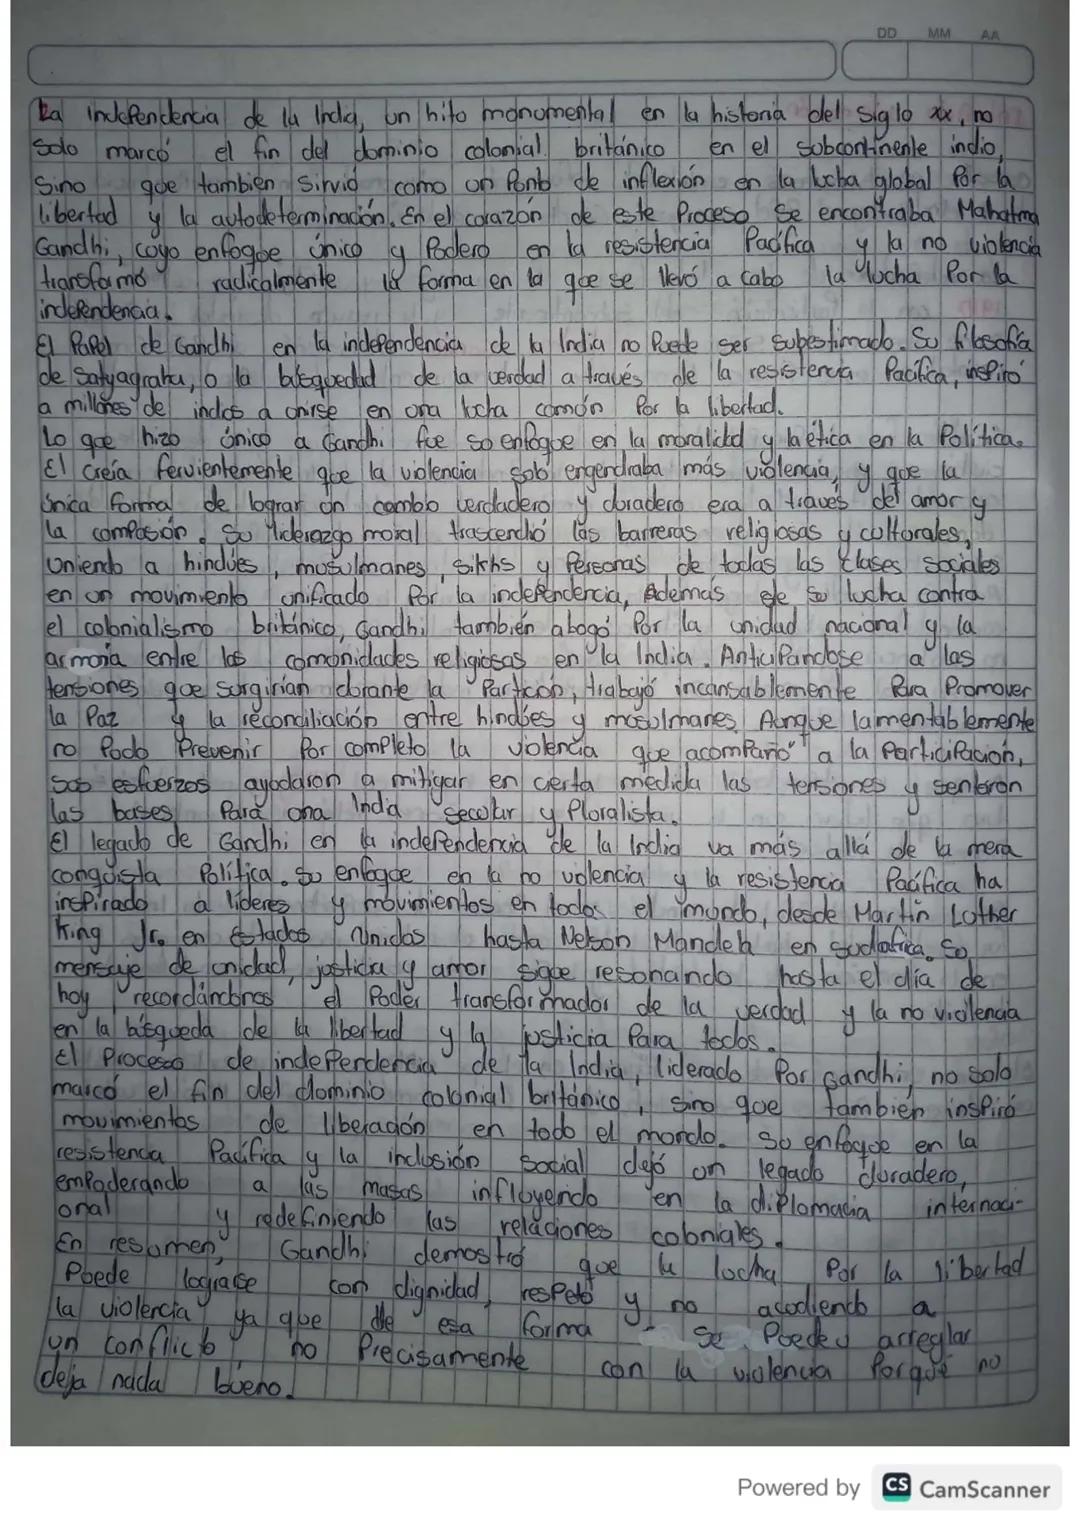 DD MM AA
La independencia de la India, un hito monumental en la historia del siglo xx, no
solo marcó el fin del dominio colonial británico en el subcontinente indio,
sino que tambien sirvió como un Punto de inflexión en la lucha global Por la
libertad y la autodeterminación. En el corazón de este Proceso se encontraba Mahatma
Gandhi, cuyo enfoque único y Podero en la resistencia Pacífica y la no violencia
transformó radicalmente la forma en la que se llevó a cabo la lucha Por la
independencia.
El Papel de Gandhi en la independencia de la India no Puede ser subestimado. Su filosofía
de Satyagraha, o la búsquedad de la verdad a través de la resistencia Pacífica, inspiró
a millones de indios a unirse en una lucha común Por la libertad.
Lo que hizo único a Gandhi fue su enfoque en la moralidad y la ética en la Política.
El creía fervientemente que la violencia solo engendraba más violencia, y que la
única forma de lograr un cambio verdadero y duradero era a través del amor y
la compasión. Su liderazgo moral trascendió las barreras religiosas y culturales,
Uniendo a hindúes, musulmanes, sikhs y Personas de todas las clases sociales
en un movimiento unificado Por la independencia, Además de su lucha contra
el colonialismo británico, Gandhi también abogó Por la unidad nacional y la
armonía entre las comunidades religiosas en la India. Anticipandose a las
tensiones que surgirían durante la Partición, trabajó incansablemente Para Promover
la Paz y la reconciliación entre hindúes y musulmanes. Aunque lamentablemente
no Pudo Prevenir Por completo la violencia que acompañó a la Participacion,
sus esfuerzos ayudaron a mitigar en cierta medida las tensiones y sentaron
las bases Para una India secular y Pluralista.
El legado de Gandhi en la independencia de la India va más allá de la mera
conquista Política. Su enfoque en la no violencia y la resistencia Pacífica ha
inspirado a líderes y movimientos en todos el mundo, desde Martin Luther
King Jr. en Estados Unidos hasta Nelson Mandela en Sudafrica. Su
mensaje de unidad, justicia y amor sigue resonando hasta el día de
hoy recordándonos el Poder transformador de la verdad y la no violencia
en la búsqueda de la libertad y la justicia Para todos.
El Proceso de independencia de la India, liderado Por Gandhi, no solo
marcó el fin del dominio colonial británico, sino que también inspiró
movimientos de liberación en todo el mundo. Su enfoque en la
resistencia Pacífica y la inclusión social dejó un legado duradero,
empoderando a las masas influyendo en la diplomacia internaci-
onal y redefiniendo las relaciones coloniales.
En resumen, Gandhi demostró que la lucha Por la libertad
Puede lograrse con dignidad, respeto y no acudiendo a
la violencia ya que de esa forma se Puede arreglar
un conflicto no Precisamente con la violencia Porque no
deja nada bueno.
Powered by CS CamScanner